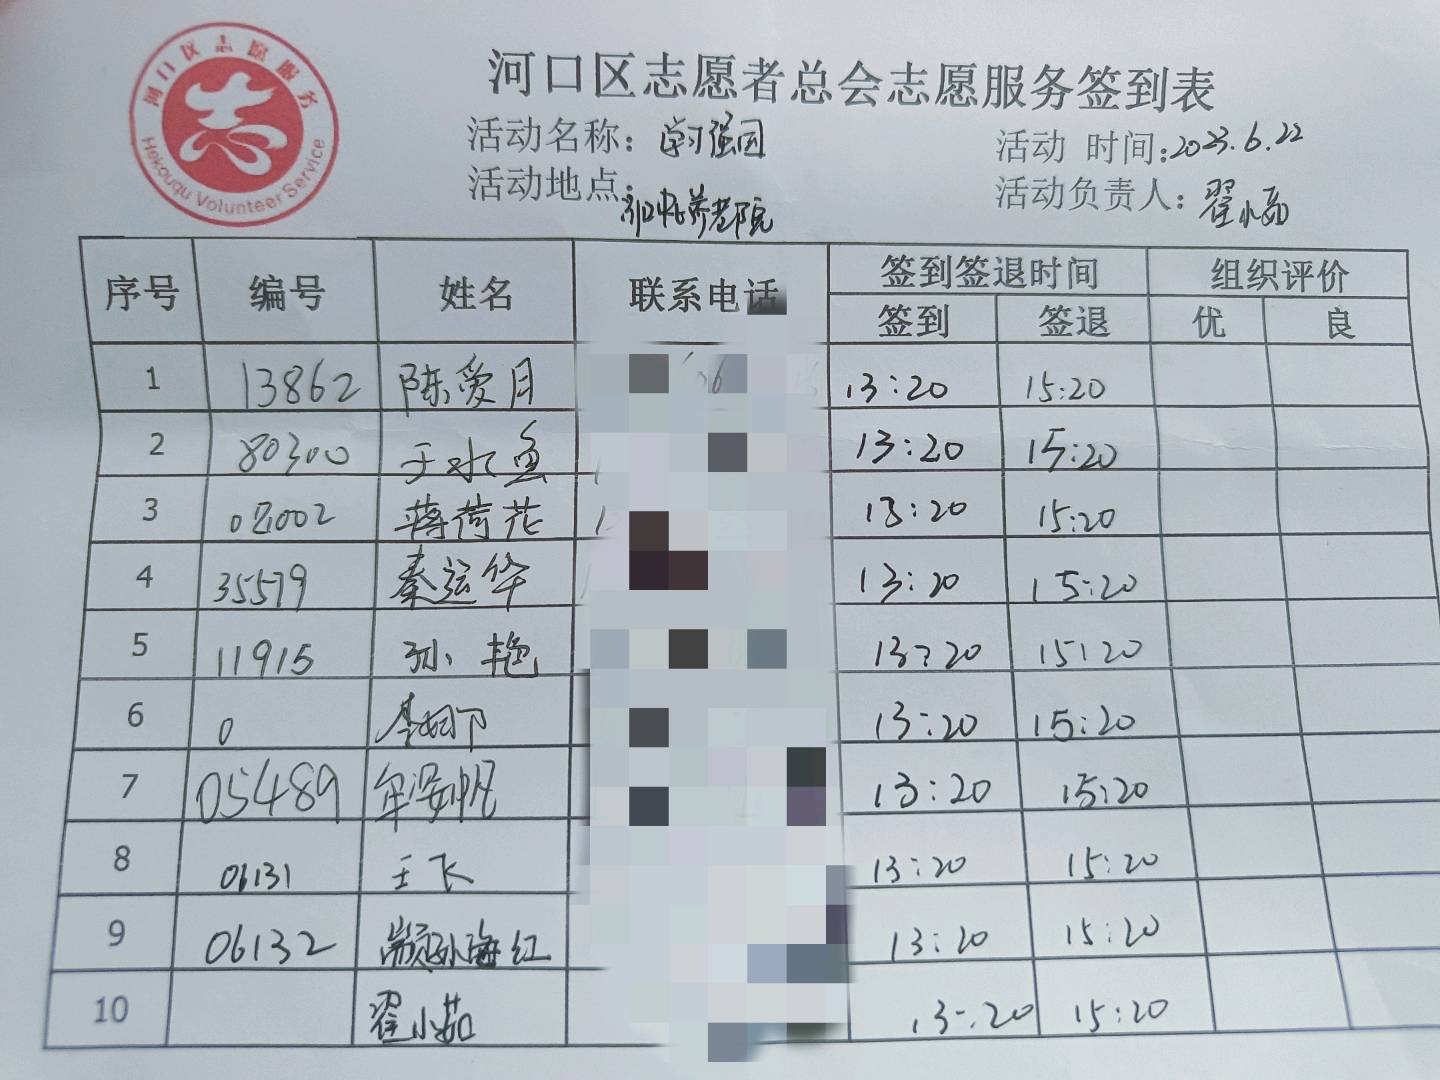 河口区志愿服务
Hekouqu Volunteer Service
河口区志愿者总会志愿服务签到表
活动名称：学习强国 活动 时间：2023.6.22
活动地点： 养老院 活动负责人：翟小茹
序号 编号 姓名 联系电话 签到签退时间 组织评价
签到 签退 优 良
1 13862 陈爱月 13:20 15:20
2 80300 于水鱼 13:20 15:20
3 02002 蒋荷花 13:20 15:20
4 35579 秦运华 13:20 15:20
5 11915 孙艳 13:20 15:20
6 0 李娜 13:20 15:20
7 05489 牟安帆 13:20 15:20
8 06131 王飞 13:20 15:20
9 06132 颛孙海红 13:20 15:20
10 翟小茹 13:20 15:20